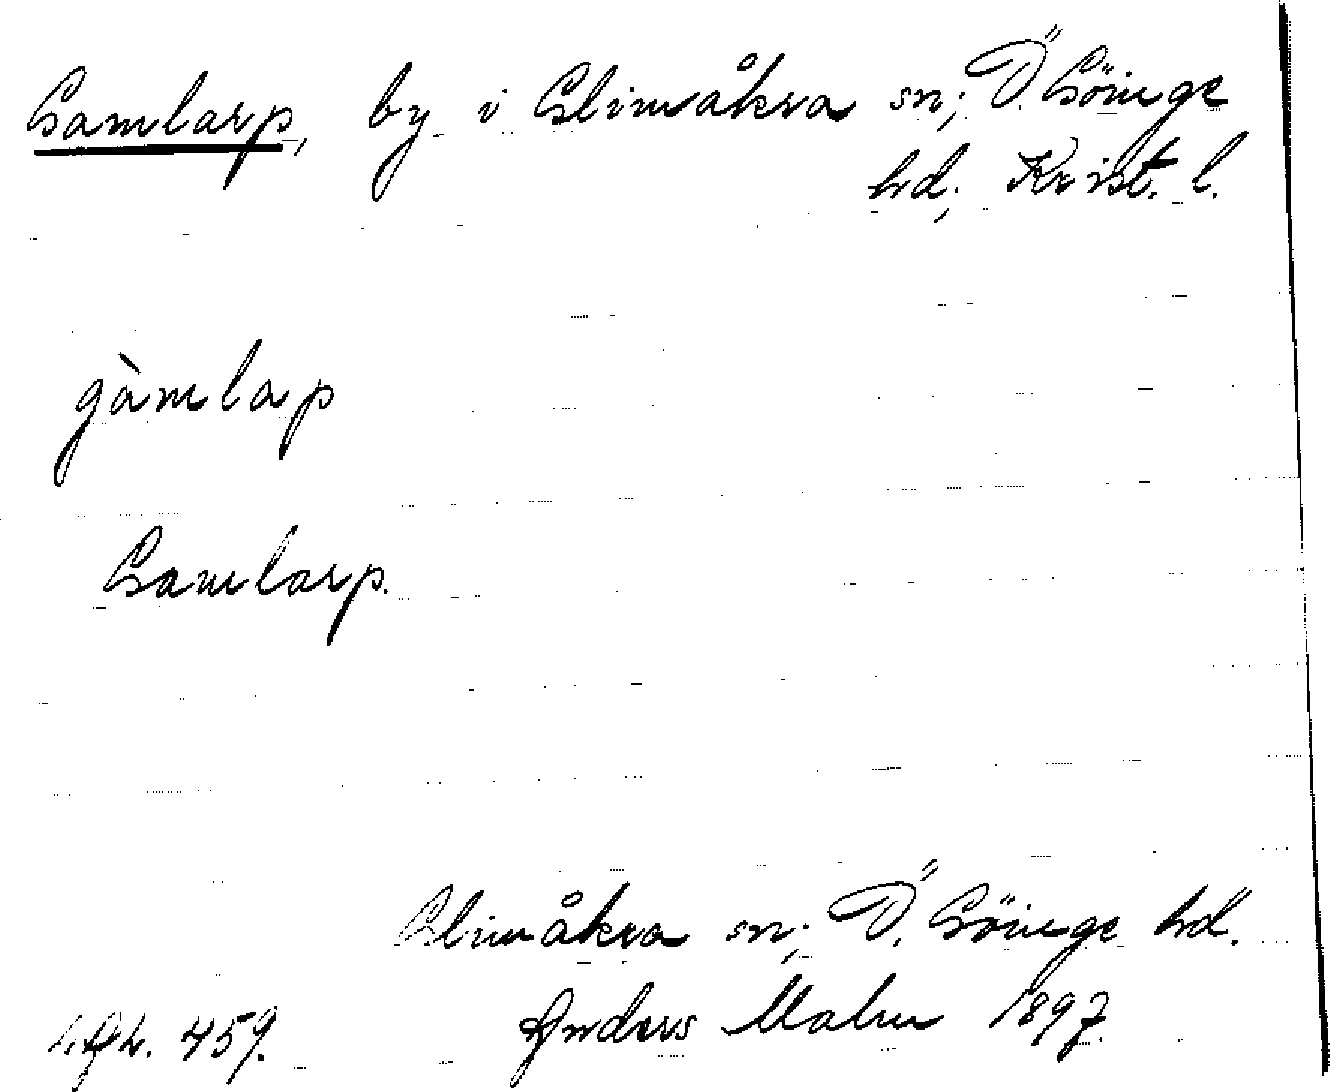 Gamlarp, by i Glimåkra sn; Ö. Göinge
hd; Krist. l.
gàmlap
Gamlarp.
Glimåkra sn; Ö. Göinge hd.
459. Anders Malm 1897.